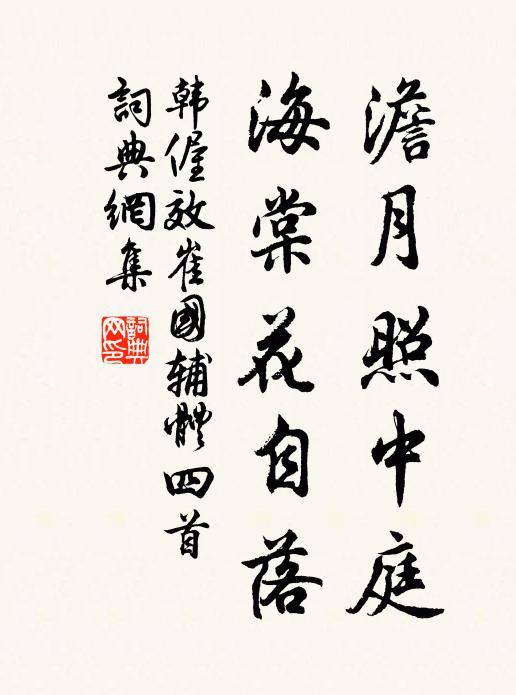 澹月照中庭
海棠花自落
韩偓效崔國輔體四首
詞典網集
詞典網印